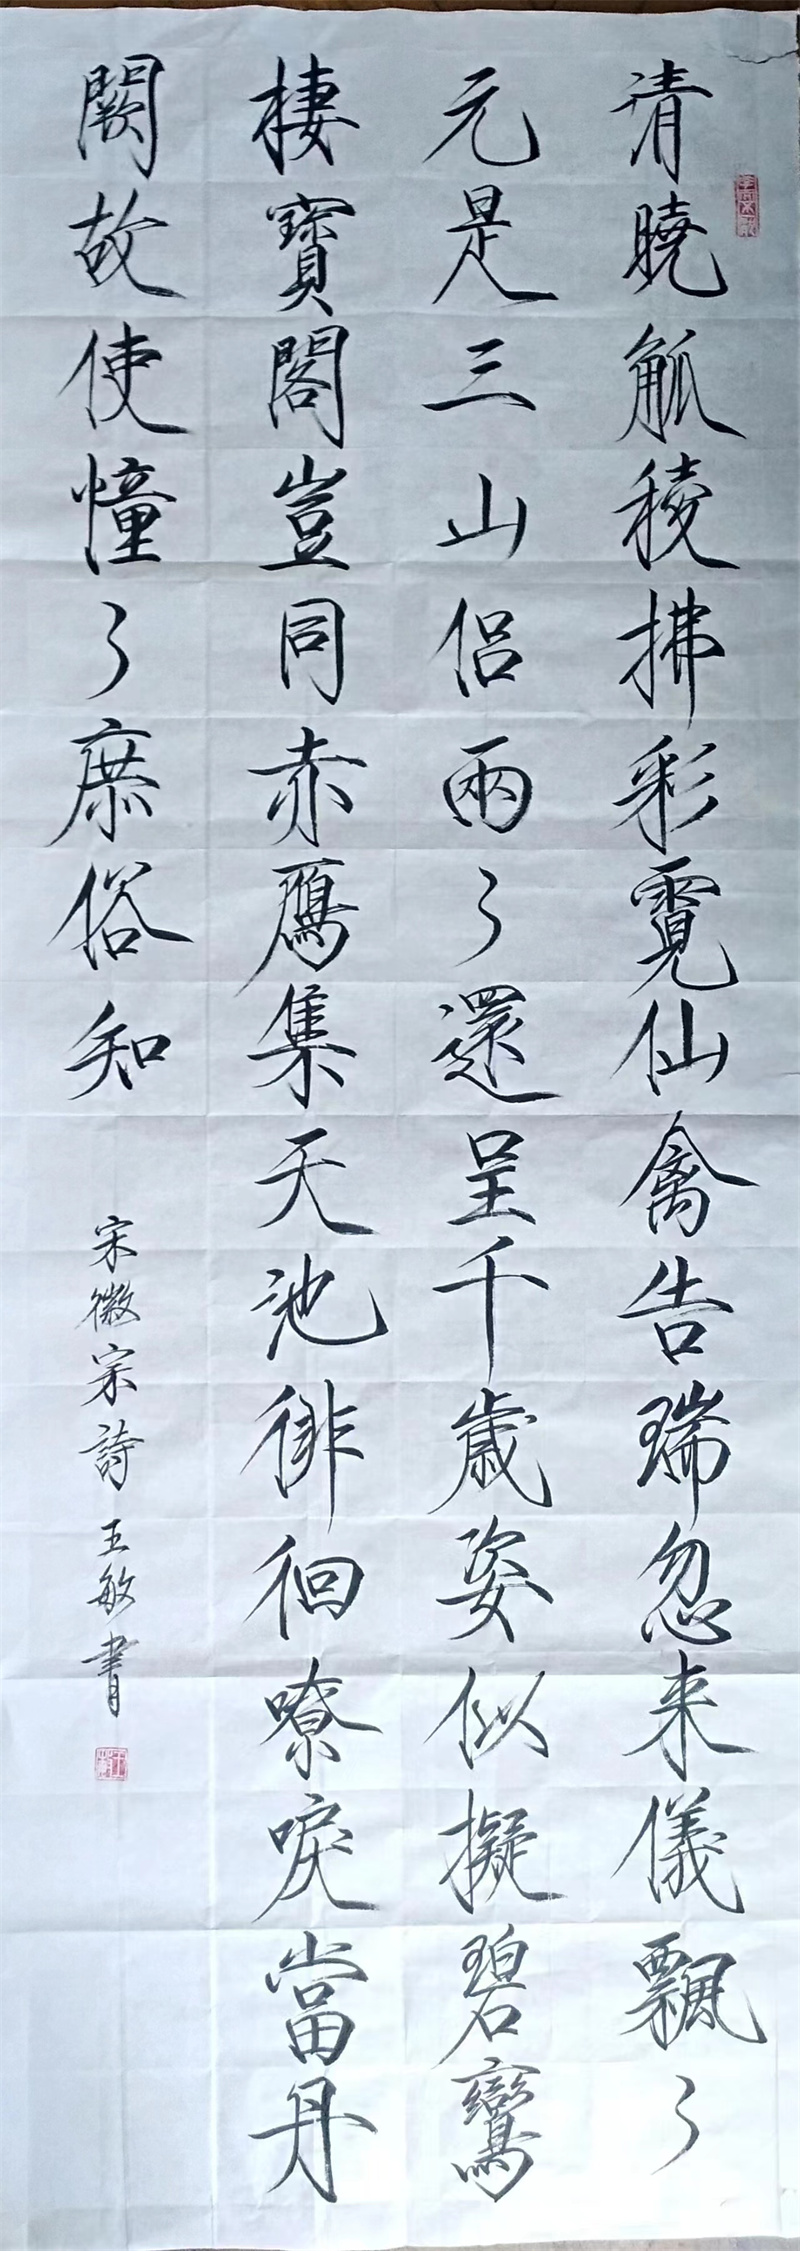 清曉觚稜拂彩霓仙禽告瑞忽来儀飄了
元是三山侣兩了還呈千歲姿似擬碧鸞
棲寶閣豈同赤鴈集天池徘徊嘹唳當丹
闕故使憧了庶俗知
宋徽宗詩 王敏書